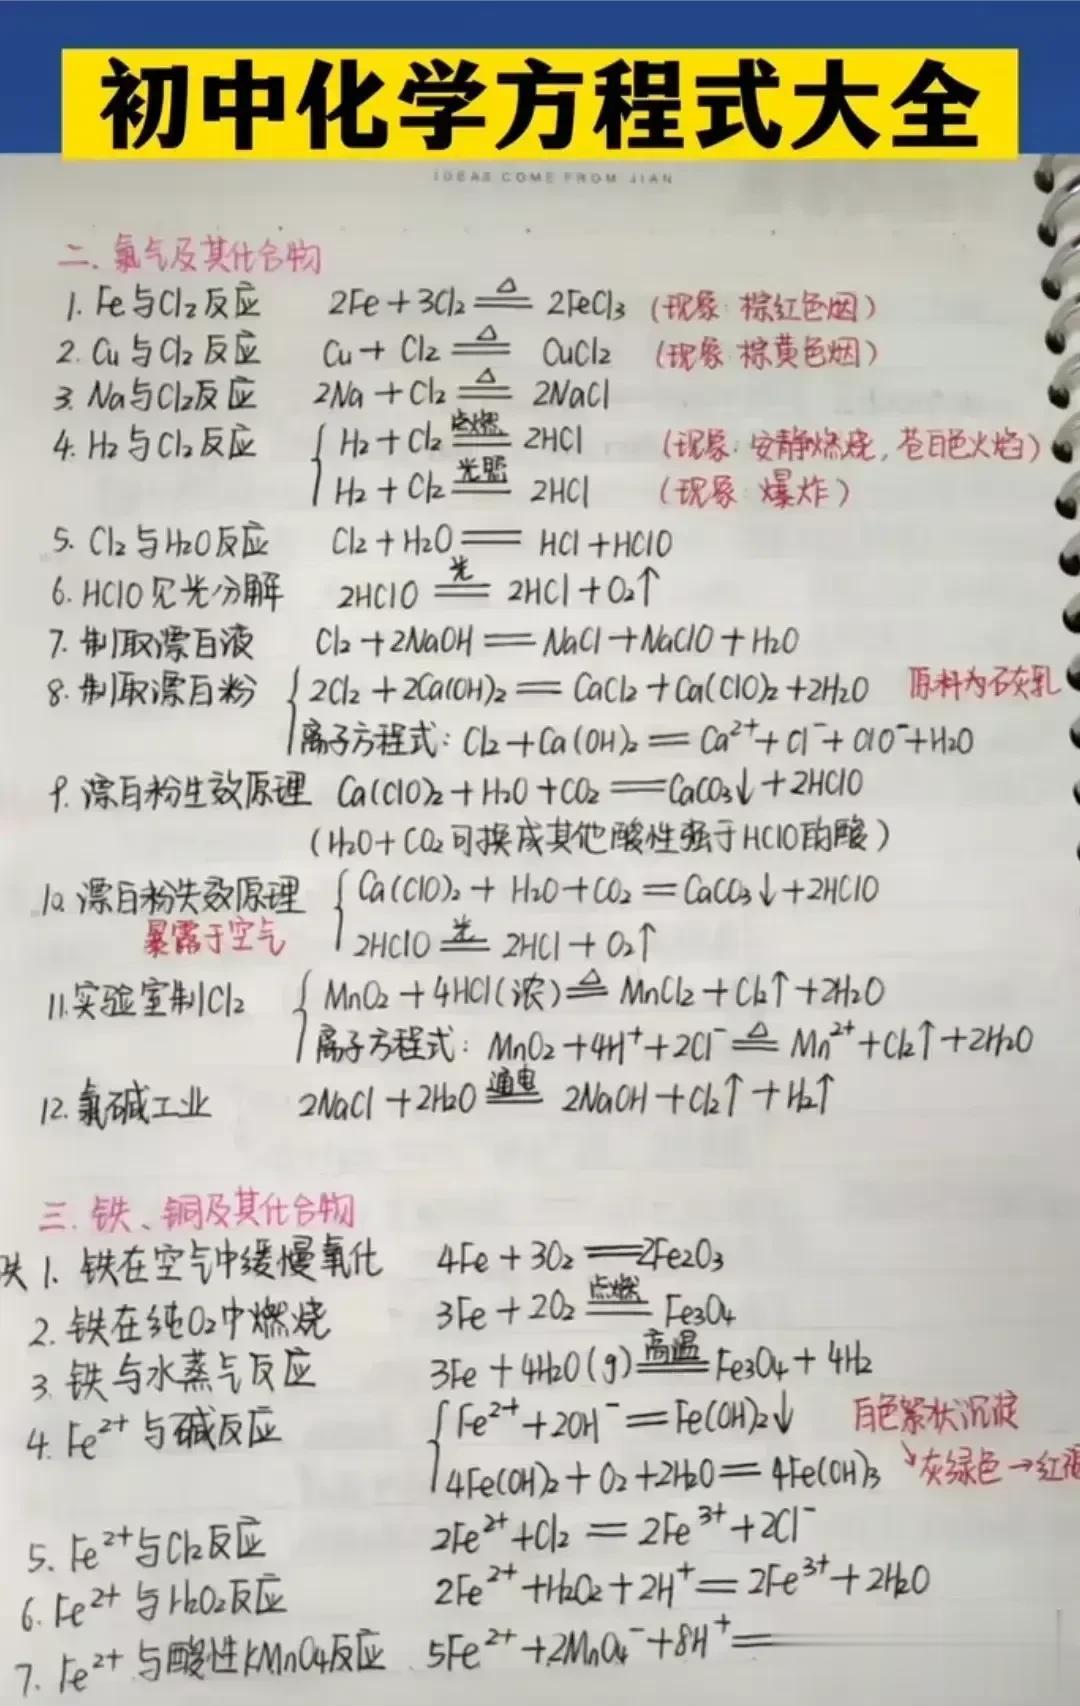 初中化学方程式大全
IDEAS COME FROM JIAN
二、氯气及其化合物
1. Fe与Cl₂反应 2Fe + 3Cl₂ ≜ 2FeCl₃ (现象: 棕红色烟)
2. Cu与Cl₂反应 Cu + Cl₂ ≜ CuCl₂ (现象: 棕黄色烟)
3. Na与Cl₂反应 2Na + Cl₂ ≜ 2NaCl
4. H₂与Cl₂反应 { H₂ + Cl₂ =点燃= 2HCl (现象: 安静燃烧, 苍白色火焰)
H₂ + Cl₂ =光照= 2HCl (现象: 爆炸)
5. Cl₂与H₂O反应 Cl₂ + H₂O == HCl + HClO
6. HClO见光分解 2HClO =光= 2HCl + O₂↑
7. 制取漂白液 Cl₂ + 2NaOH == NaCl + NaClO + H₂O
8. 制取漂白粉 { 2Cl₂ + 2Ca(OH)₂ == CaCl₂ + Ca(ClO)₂ + 2H₂O 原料为石灰乳
离子方程式: Cl₂ + Ca(OH)₂ == Ca²⁺ + Cl⁻ + ClO⁻ + H₂O
9. 漂白粉生效原理 Ca(ClO)₂ + H₂O + CO₂ == CaCO₃↓ + 2HClO
(H₂O + CO₂可换成其他酸性强于HClO的酸)
10. 漂白粉失效原理 { Ca(ClO)₂ + H₂O + CO₂ == CaCO₃↓ + 2HClO
暴露于空气 2HClO =光= 2HCl + O₂↑
11. 实验室制Cl₂ { MnO₂ + 4HCl(浓) ≜ MnCl₂ + Cl₂↑ + 2H₂O
离子方程式: MnO₂ + 4H⁺ + 2Cl⁻ ≜ Mn²⁺ + Cl₂↑ + 2H₂O
12. 氯碱工业 2NaCl + 2H₂O =通电= 2NaOH + Cl₂↑ + H₂↑
三、铁、铜及其化合物
铁 1. 铁在空气中缓慢氧化 4Fe + 3O₂ == 2Fe₂O₃
2. 铁在纯O₂中燃烧 3Fe + 2O₂ =点燃= Fe₃O₄
3. 铁与水蒸气反应 3Fe + 4H₂O(g) =高温= Fe₃O₄ + 4H₂
4. Fe²⁺与碱反应 { Fe²⁺ + 2OH⁻ == Fe(OH)₂↓ 白色絮状沉淀
4Fe(OH)₂ + O₂ + 2H₂O == 4Fe(OH)₃ ↘灰绿色→红褐
5. Fe²⁺与Cl₂反应 2Fe²⁺ + Cl₂ == 2Fe³⁺ + 2Cl⁻
6. Fe²⁺与H₂O₂反应 2Fe²⁺ + H₂O₂ + 2H⁺ == 2Fe³⁺ + 2H₂O
7. Fe²⁺与酸性KMnO₄反应 5Fe²⁺ + 2MnO₄⁻ + 8H⁺ ==